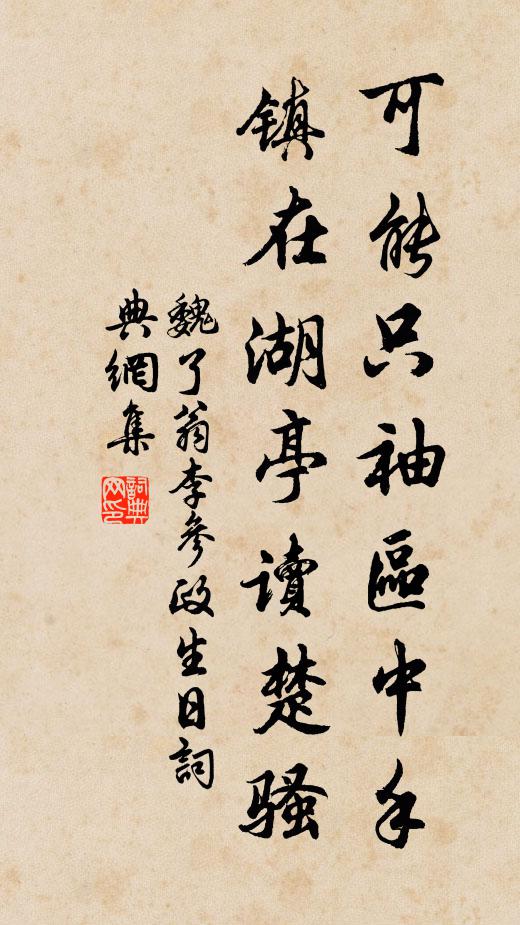 可能只袖區中手
镇在湖亭读楚骚
魏了翁李參政生日詞
典網集
詞典網印